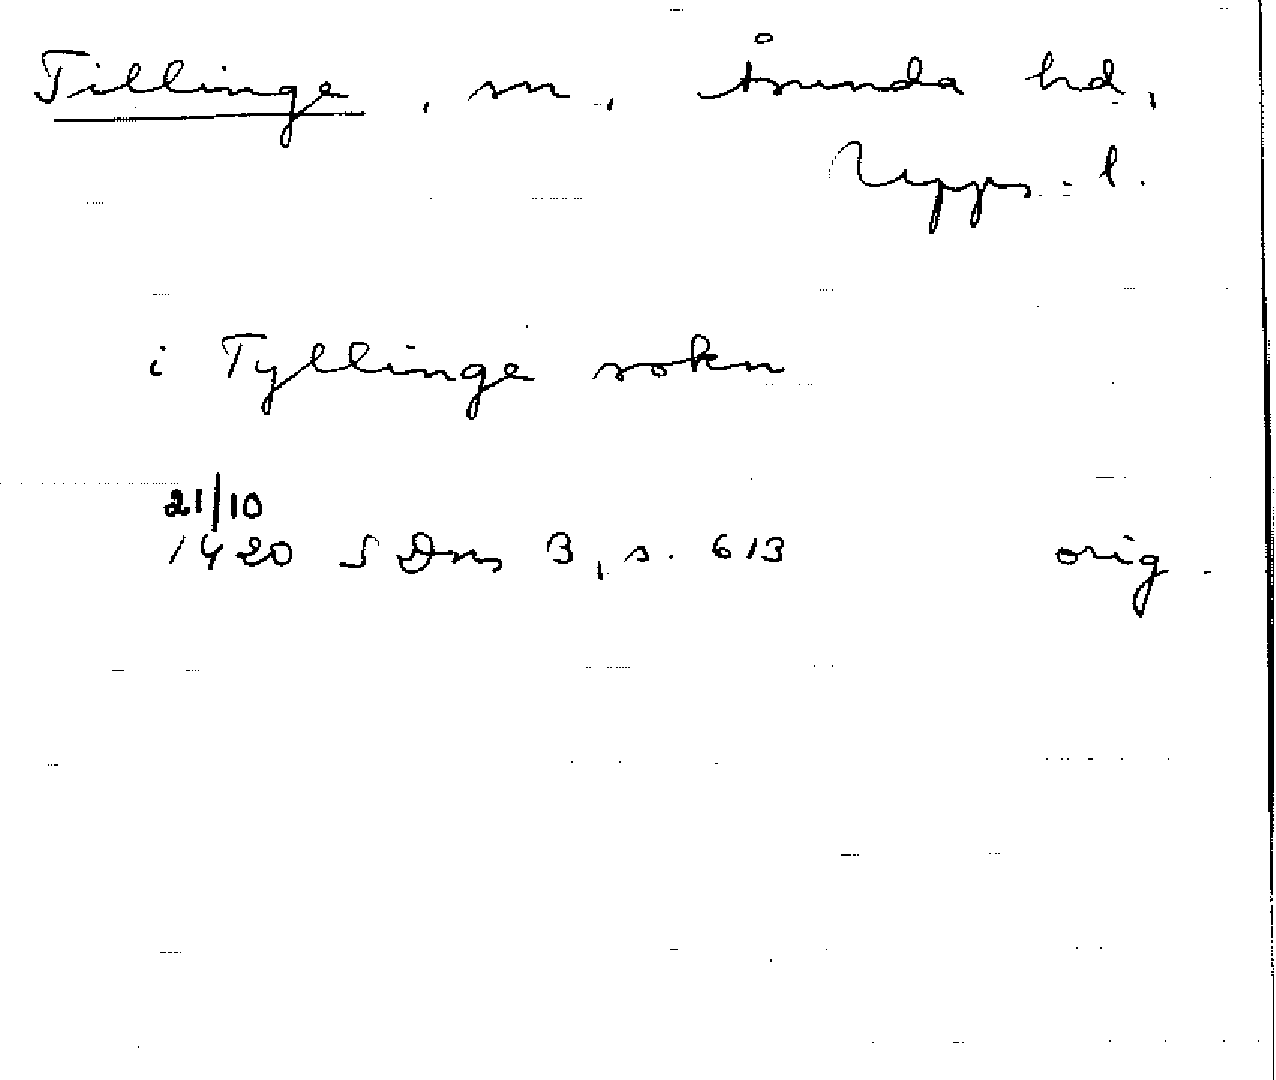 Tillinge, sn, Åsunda hd,
Upps. l.
i Tyllinge sokn
21/10
1420 SDns 3, s. 613 orig.